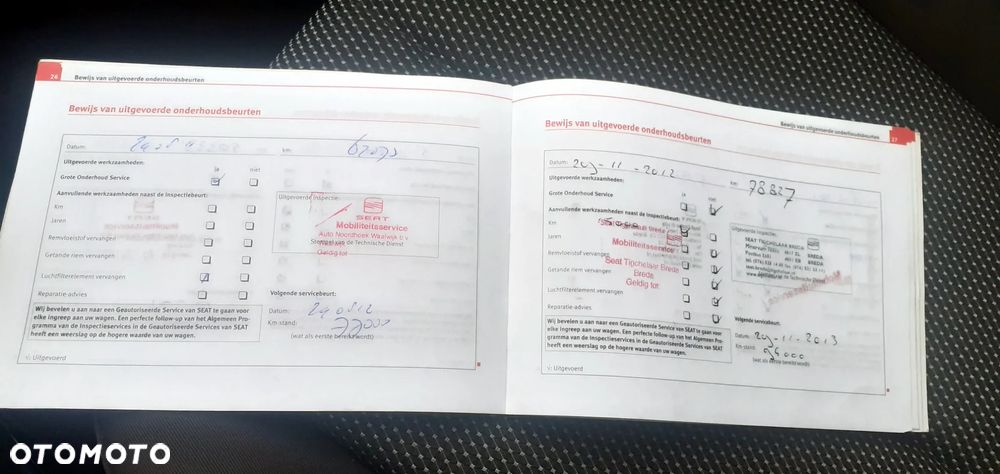 26 Bewijs van uitgevoerde onderhoudsbeurten
Bewijs van uitgevoerde onderhoudsbeurten
Datum:
km:
Uitgevoerde werkzaamheden:
ja niet
Grote Onderhoud Service
Aanvullende werkzaamheden naast de Inspectiebeurt:
Km
Jaren
Remvloeistof vervangen
Getande riem vervangen
Luchtfilterelement vervangen
Reparatie-advies
Uitgevoerde Inspectie:
SEAT
Mobiliteitsservice
Auto Noordhoek Waalwijk b.v.
Stempel van de Technische Dienst
Geldig tot
Wij bevelen u aan naar een Geautoriseerde Service van SEAT te gaan voor
elke ingreep aan uw wagen. Een perfecte follow-up van het Algemeen Pro-
gramma van de Inspectieservices in de Geautoriseerde Services van SEAT
heeft een weerslag op de hogere waarde van uw wagen.
Volgende servicebeurt:
Datum:
Km-stand: 77000
(wat als eerste bereikt wordt)
√: Uitgevoerd
Bewijs van uitgevoerde onderhoudsbeurten 27
Bewijs van uitgevoerde onderhoudsbeurten
Datum: 29-11-2012
km: 78827
Uitgevoerde werkzaamheden:
ja niet
Grote Onderhoud Service
Aanvullende werkzaamheden naast de Inspectiebeurt:
Km
Jaren
Remvloeistof vervangen
Getande riem vervangen
Luchtfilterelement vervangen
Reparatie-advies
Mobiliteitsservice
Seat Tigchelaar Breda
Breda
Geldig tot
SEAT
SEAT TIGCHELAAR BREDA
BREDA
Wij bevelen u aan naar een Geautoriseerde Service van SEAT te gaan voor
elke ingreep aan uw wagen. Een perfecte follow-up van het Algemeen Pro-
gramma van de Inspectieservices in de Geautoriseerde Services van SEAT
heeft een weerslag op de hogere waarde van uw wagen.
Volgende servicebeurt:
Datum: 29-11-2013
Km-stand:
(wat als eerste bereikt wordt)
√: Uitgevoerd
OTOMOTO